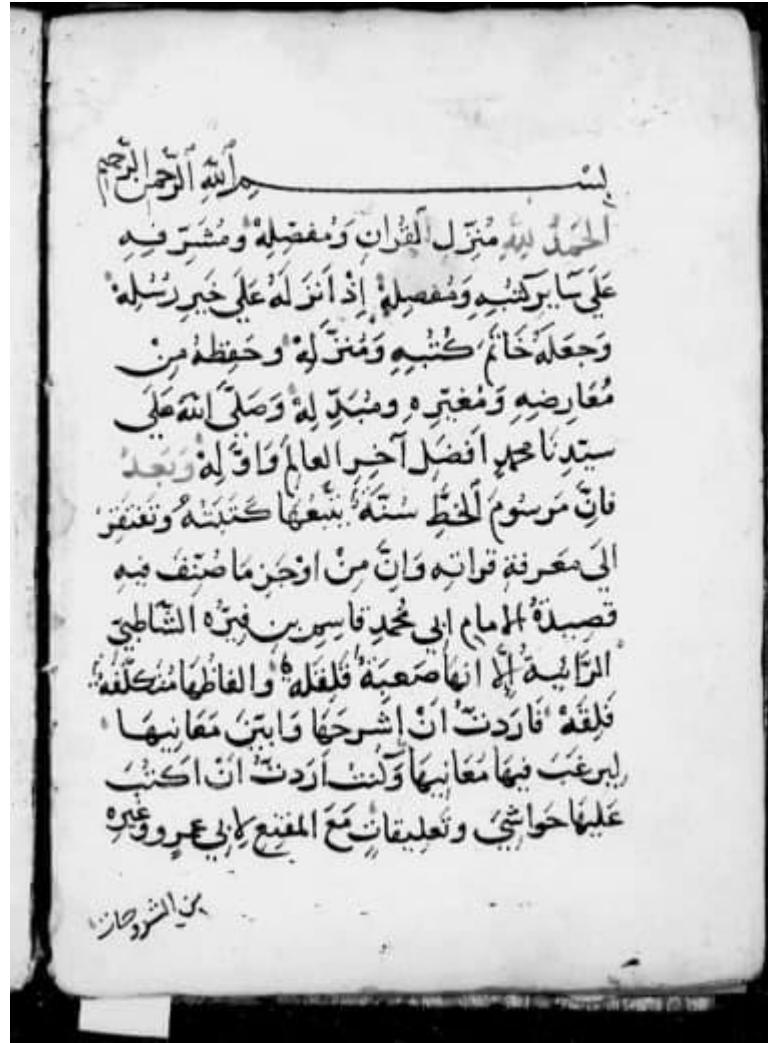 بِسْمِ ٱللَّهِ ٱلرَّحْمَنِ ٱلرَّحِيمِ
الحَمْدُ لِلَّهِ مُنزِّلِ القُرانِ وَمُفصِّلِهْ وَمُشَرِّفِهِ
عَلَى سَايِر كتُبِهِ وَمُفصِلِهْ إِذْ اَنزَلَهُ عَلَى خَيرِ رُسُلِهْ
وَجَعَلَهُ خَاتَمَ كُتُبِهِ وَمُنزَّلِهْ وحَفِظهُ مِنْ
مُعَارِضِهِ وَمُغيِّرِهِ ومُبَدِّلِهْ وَصَلَّى اللهُ عَلَى
سيّدِنَا محمدٍ افضَلِ آخِرِ العالمِ وَاوَّلِهْ وَبَعدُ
فانَّ مَرسُومَ الخطِّ سُنَّةٌ يتَّبعُهَا كتَبَتُهُ وتفتقِرُ
الى مَعَرفةِ قراتِهِ وَانَّ مِنْ اوْجَزِ مَا صُنّفَ فيهِ
قصِيدَةُ الامام ابي مُحمدٍ قاسِمِ بنِ فِيرُّه الشّاطبيّ
الرَّائيةُ إلَّا انهَا صَعبَةٌ قلِقلهْ والفاظُهَا مُتكلّفهْ
قلِقَهْ فَارَدتُ اَنْ اشرحَهَا وَابيّنَ مَعَانِيهَا
ليرغبَ فيهَا مَعَانِيهَا وَكُنتُ اَردتُ انْ اكتُبَ
عَليهَا حَواشِيَ وتَعلِيقاتٍ مَعَ المقنِعِ لِابي عمرٍو وغيرِهِ
من الشروحات